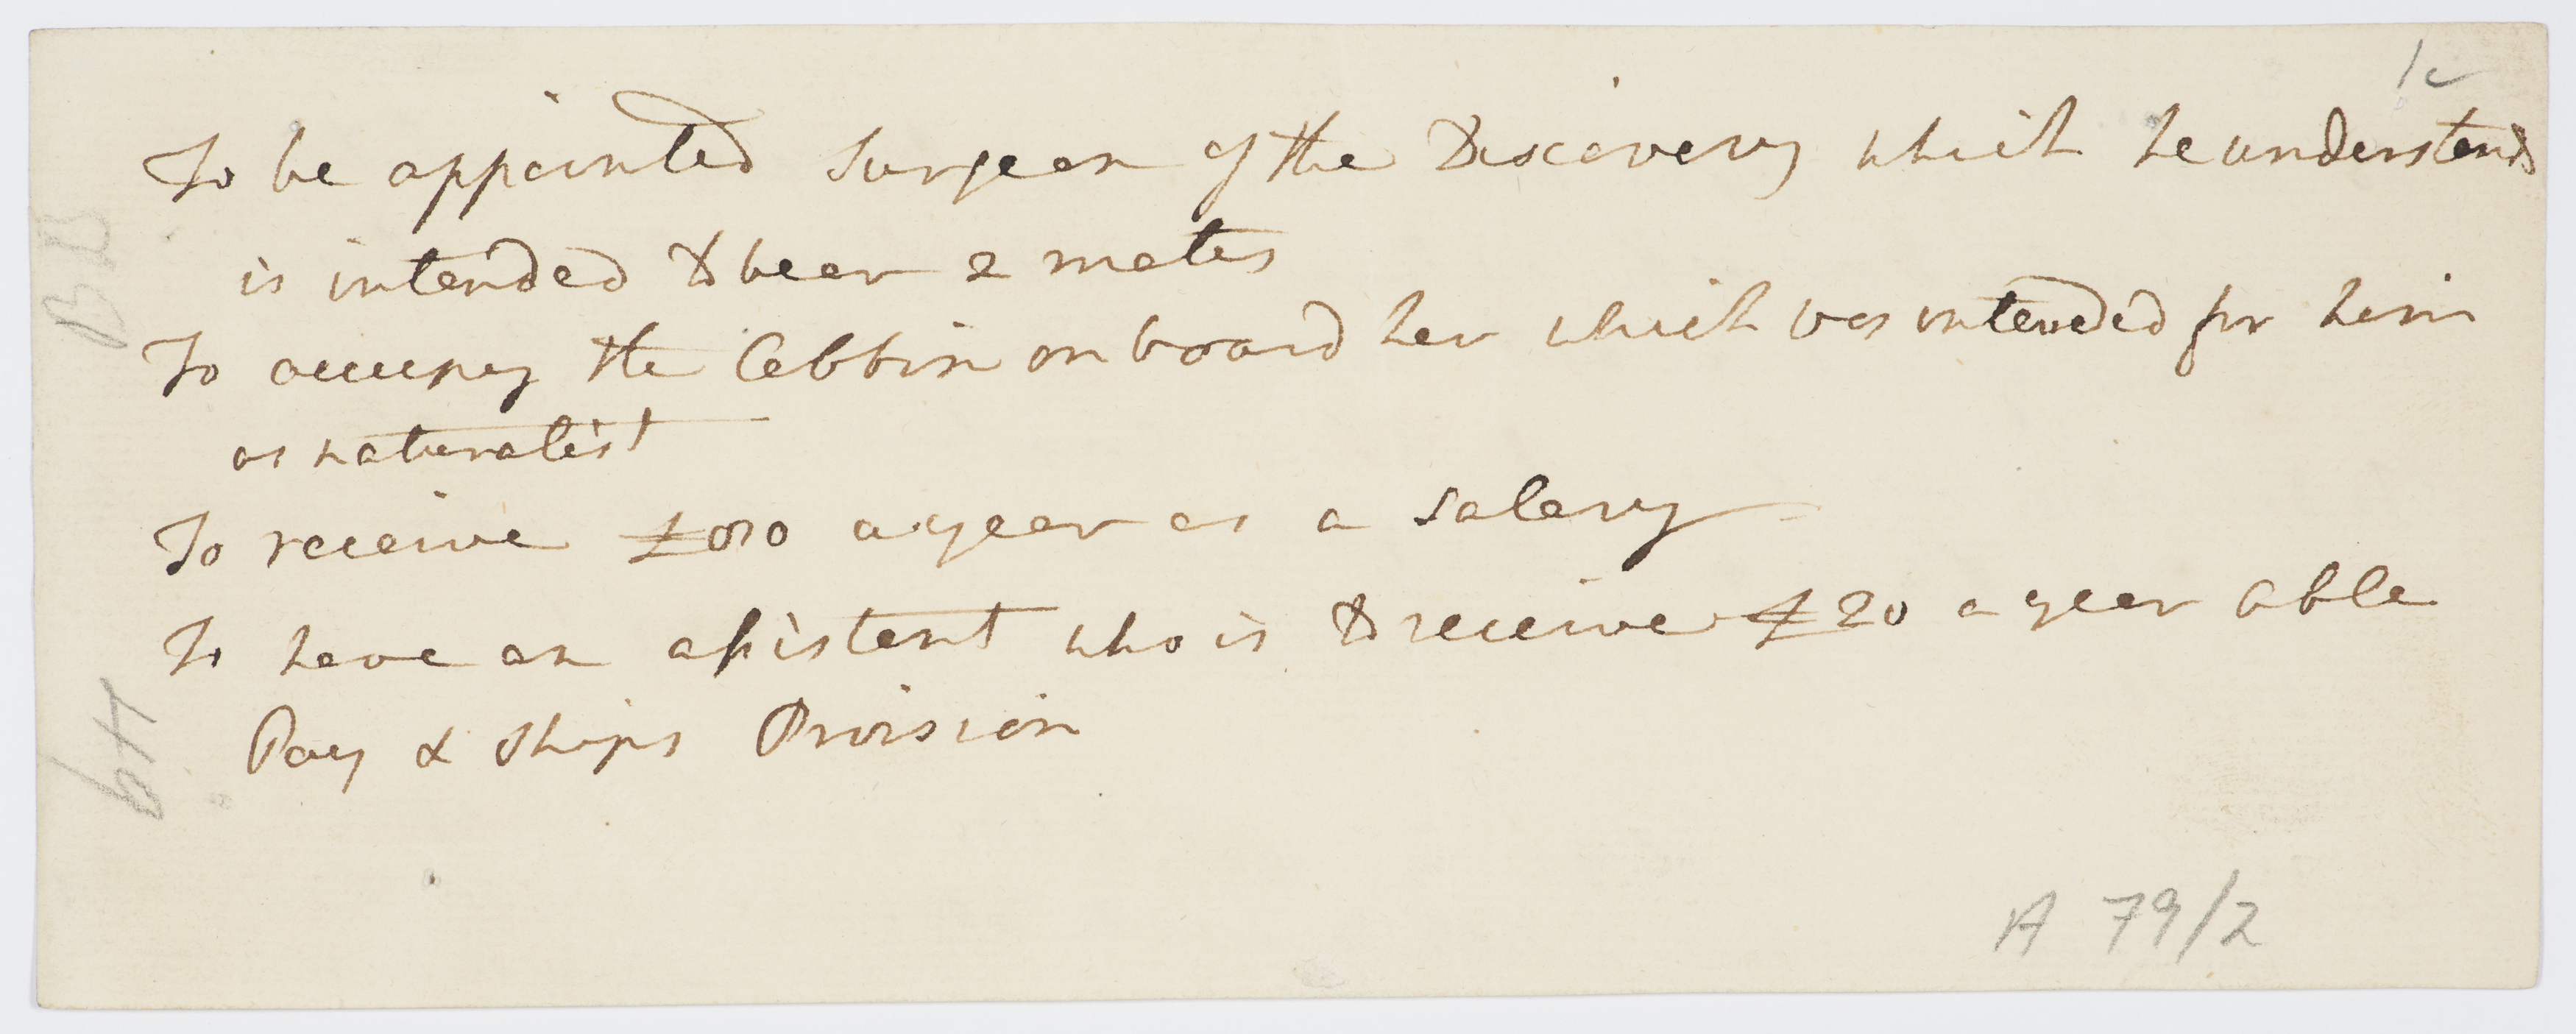 To be appointed Surgeon of the Discovery which he understands
is intended to bear 2 mates
To occupy the Cabbin on board her which was intended for him
as naturalist
To receive a year as a Salary
To have an assistant who is to receive £20 a year able
Pay & Ships Provision
A 79/2